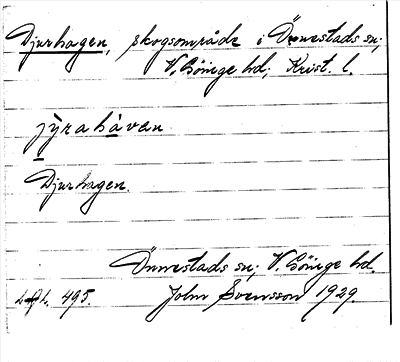 Djurhagen, skogsområde i Önnestads sn;
V. Göinge hd; Krist. l.
jyrahavan
Djurhagen.
Önnestads sn; V. Göinge hd.
495. John Svensson 1929.